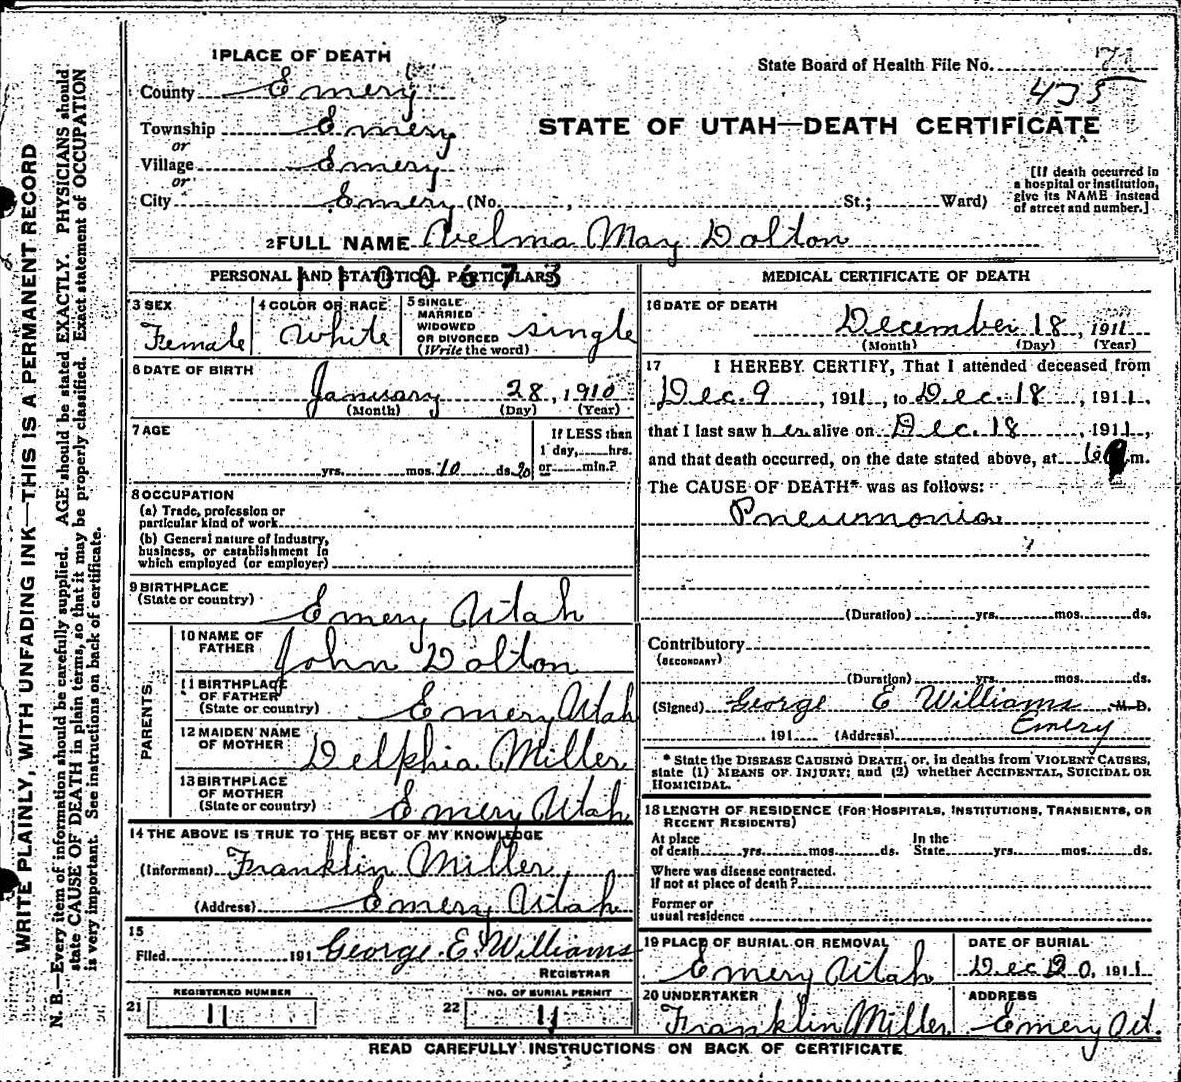 WRITE PLAINLY, WITH UNFADING INK—THIS IS A PERMANENT RECORD
N. B.—Every item of information should be carefully supplied. AGE should be stated EXACTLY. PHYSICIANS should
state CAUSE OF DEATH in plain terms, so that it may be properly classified. Exact statement of OCCUPATION
is very important. See instructions on back of certificate.
1 PLACE OF DEATH
State Board of Health File No.
435
County Emery
Township Emery
or
Village Emery
or
City Emery (No. , St.; Ward)
STATE OF UTAH—DEATH CERTIFICATE
[If death occurred in
a hospital or institution,
give its NAME instead
of street and number.]
2 FULL NAME Velma May Dalton
PERSONAL AND STATISTICAL PARTICULARS
1100673
3 SEX
Female
4 COLOR OR RACE
White
5 SINGLE
MARRIED
WIDOWED
OR DIVORCED
(Write the word)
single
6 DATE OF BIRTH
January 28, 1910
(Month) (Day) (Year)
7 AGE
yrs. mos. 10 ds. 20
If LESS than
1 day, hrs.
or min.?
8 OCCUPATION
(a) Trade, profession or
particular kind of work
(b) General nature of industry,
business, or establishment in
which employed (or employer)
9 BIRTHPLACE
(State or country)
Emery Utah
PARENTS
10 NAME OF
FATHER
John Dalton
11 BIRTHPLACE
OF FATHER
(State or country)
Emery Utah
12 MAIDEN NAME
OF MOTHER
Delphia Miller
13 BIRTHPLACE
OF MOTHER
(State or country)
Emery Utah
14 THE ABOVE IS TRUE TO THE BEST OF MY KNOWLEDGE
(Informant) Franklin Miller
(Address) Emery Utah
15
Filed 191 George E. Williams
REGISTRAR
21 REGISTERED NUMBER
11
22 NO. OF BURIAL PERMIT
11
MEDICAL CERTIFICATE OF DEATH
16 DATE OF DEATH
December 18, 1911
(Month) (Day) (Year)
17 I HEREBY CERTIFY, That I attended deceased from
Dec. 9, 1911, to Dec. 18, 1911,
that I last saw her alive on Dec. 18, 1911,
and that death occurred, on the date stated above, at m.
The CAUSE OF DEATH* was as follows:
Pneumonia
(Duration) yrs. mos. ds.
Contributory
(SECONDARY)
(Duration) yrs. mos. ds.
(Signed) George E Williams M. D.
, 191 (Address) Emery
* State the DISEASE CAUSING DEATH, or, in deaths from VIOLENT CAUSES,
state (1) MEANS OF INJURY; and (2) whether ACCIDENTAL, SUICIDAL OR
HOMICIDAL.
18 LENGTH OF RESIDENCE (FOR HOSPITALS, INSTITUTIONS, TRANSIENTS, OR
RECENT RESIDENTS)
At place
of death yrs. mos. ds.
In the
State yrs. mos. ds.
Where was disease contracted,
If not at place of death?
Former or
usual residence
19 PLACE OF BURIAL OR REMOVAL
Emery Utah
DATE OF BURIAL
Dec 20, 1911
20 UNDERTAKER
Franklin Miller
ADDRESS
Emery Ut.
READ CAREFULLY INSTRUCTIONS ON BACK OF CERTIFICATE